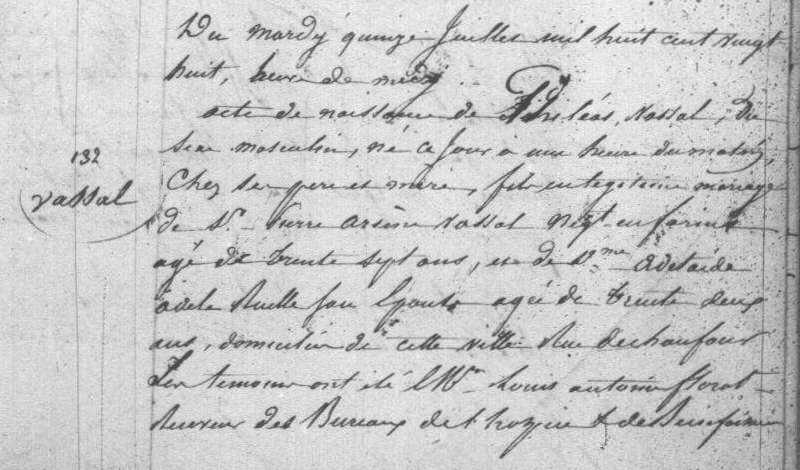 Du mardy quinze Juillet mil huit cent vingt
huit, heure de midy
acte de naissance de Philéas, Vassal, Du
sexe masculin, né ce Jour a une heure du matin,
132
Vassal
Chez ses pere et mere, fils en legitime mariage
de Sr. Pierre arsène Vassal Negt. en farine
agé de trente sept ans, et de De. adelaide
adele Ruelle son Epouse agée de trente deux
ans, domiciliés de cette ville Rue dechaufour
Les temoins ont été Mr. Louis antoine florat
Receveur des Bureaux de l'hospice & de Bienfaisance